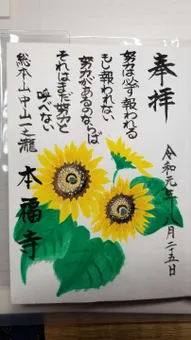 奉拝
令和元年八月二五日
努力は必ず報われる
もし報われない
努力があるのならば
それはまだ努力と
呼べない
総本山中山一之瀧
本福寺